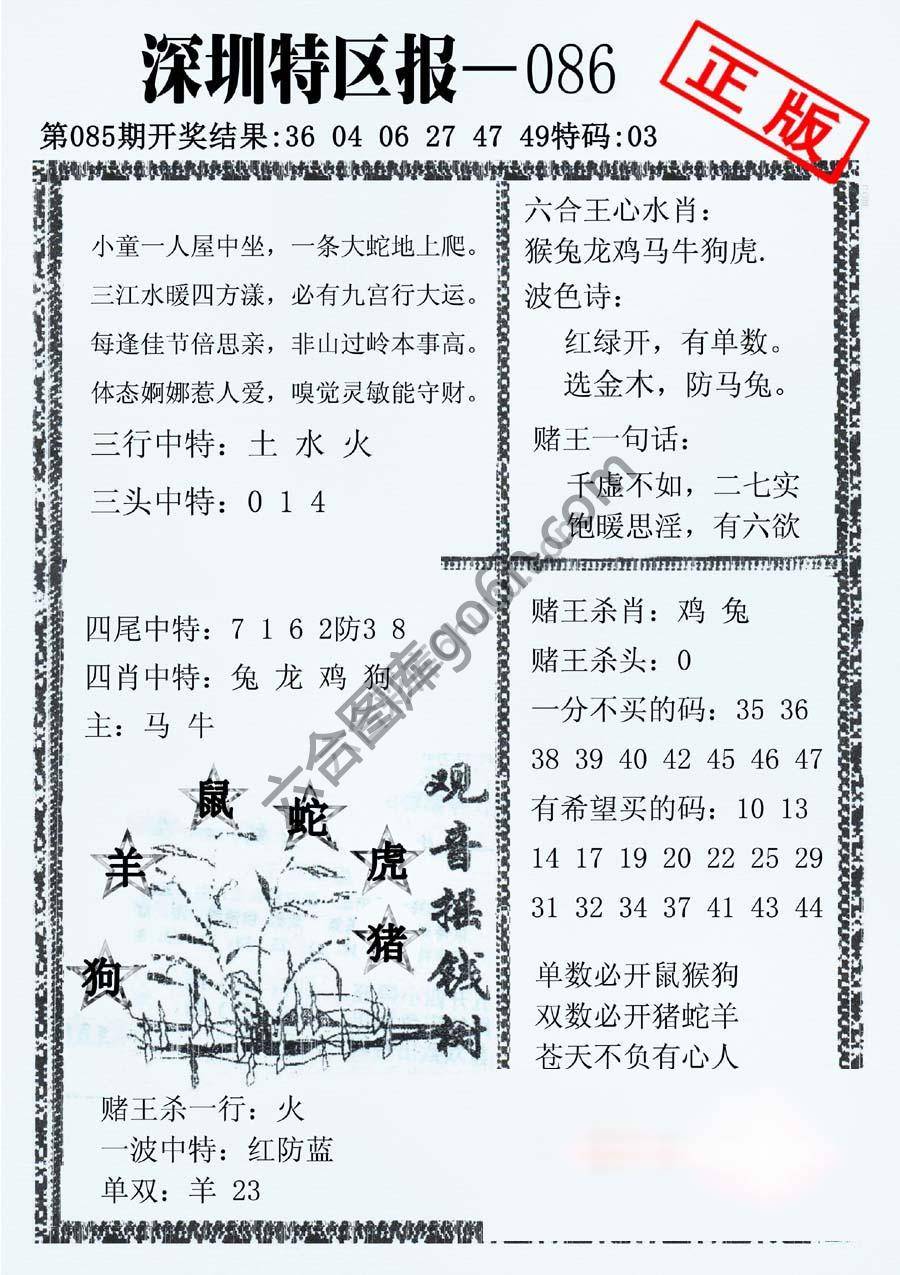 深圳特区报—086
正版
第085期开奖结果:36 04 06 27 47 49特码:03
小童一人屋中坐，一条大蛇地上爬。
三江水暖四方漾，必有九宫行大运。
每逢佳节倍思亲，非山过岭本事高。
体态婀娜惹人爱，嗅觉灵敏能守财。
三行中特：土 水 火
三头中特：0 1 4
六合王心水肖：
猴兔龙鸡马牛狗虎.
波色诗：
红绿开，有单数。
选金木，防马兔。
赌王一句话：
千虚不如，二七实
饱暖思淫，有六欲
四尾中特：7 1 6 2防3 8
四肖中特：兔 龙 鸡 狗
主：马 牛
鼠
蛇
羊
虎
猪
狗
观音摇钱树
赌王杀一行：火
一波中特：红防蓝
单双：羊 23
赌王杀肖：鸡 兔
赌王杀头：0
一分不买的码：35 36
38 39 40 42 45 46 47
有希望买的码：10 13
14 17 19 20 22 25 29
31 32 34 37 41 43 44
单数必开鼠猴狗
双数必开猪蛇羊
苍天不负有心人
六合图库go6h.com